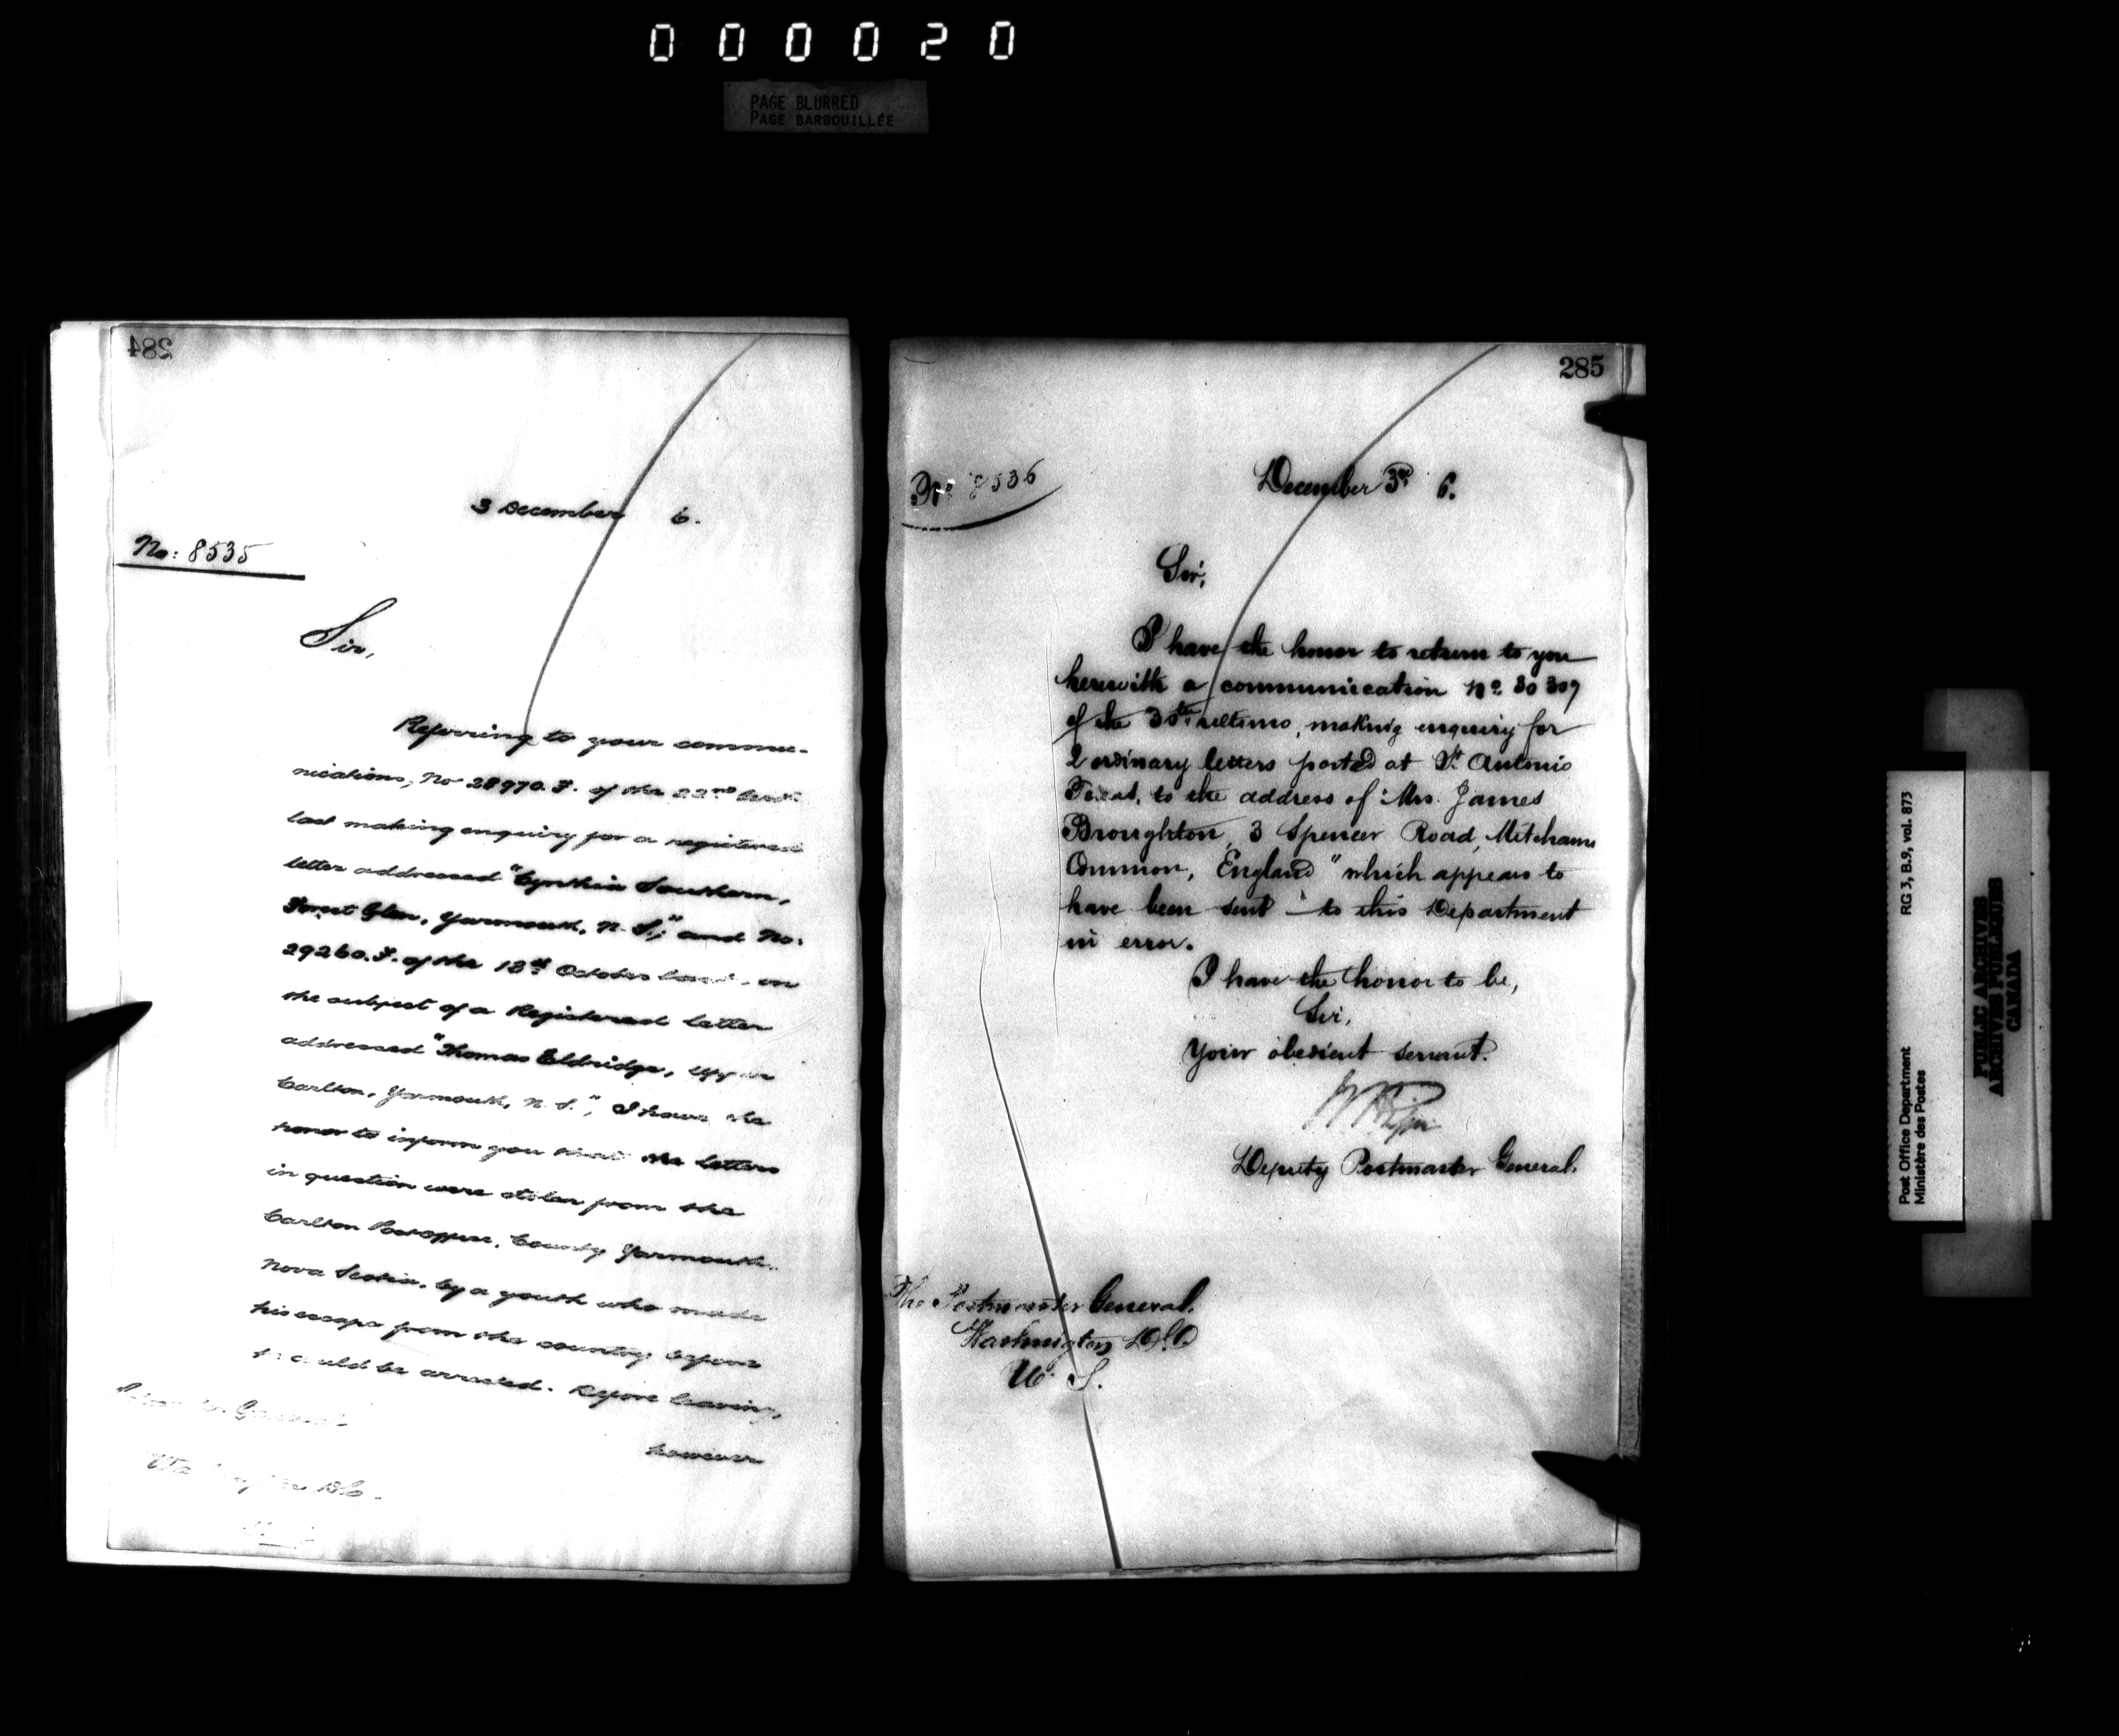 000020
PAGE BLURRED
PAGE BARBOUILLÉE
284
3 December 6.
No: 8535
Sir,
Referring to your commu-
nications, No 28970.F. of the 22nd
last making enquiry for a registered
letter addressed "Cynthia Southern,
Forest Glen, Yarmouth, N.S.," and No.
29260.F. of the 13th October last, on
the subject of a Registered letter
addressed "Thomas Eldridge, Upper
Carlton, Yarmouth, N.S.", I have the
honor to inform you that the letters
in question were stolen from the
Carlton Post office, County Yarmouth,
Nova Scotia, by a youth who made
his escape from the country before
he could be arrested. Before leaving,
however
Postmaster General
Washington D.C.
285
No 8536
December 3rd 6.
Sir,
I have the honor to return to you
herewith a communication No. 30307
of the 30th ultimo, making enquiry for
2 ordinary letters posted at St. Antonio
Texas, to the address of "Mrs. James
Broughton, 3 Spencer Road, Mitcham
Common, England" which appears to
have been sent to this Department
in error.
I have the honor to be,
Sir,
Your obedient servant.
Deputy Postmaster General.
The Postmaster General.
Washington D.C.
U. S.
Post Office Department RG 3, B.9, vol. 873
Ministère des Postes
PUBLIC ARCHIVES
ARCHIVES PUBLIQUES
CANADA